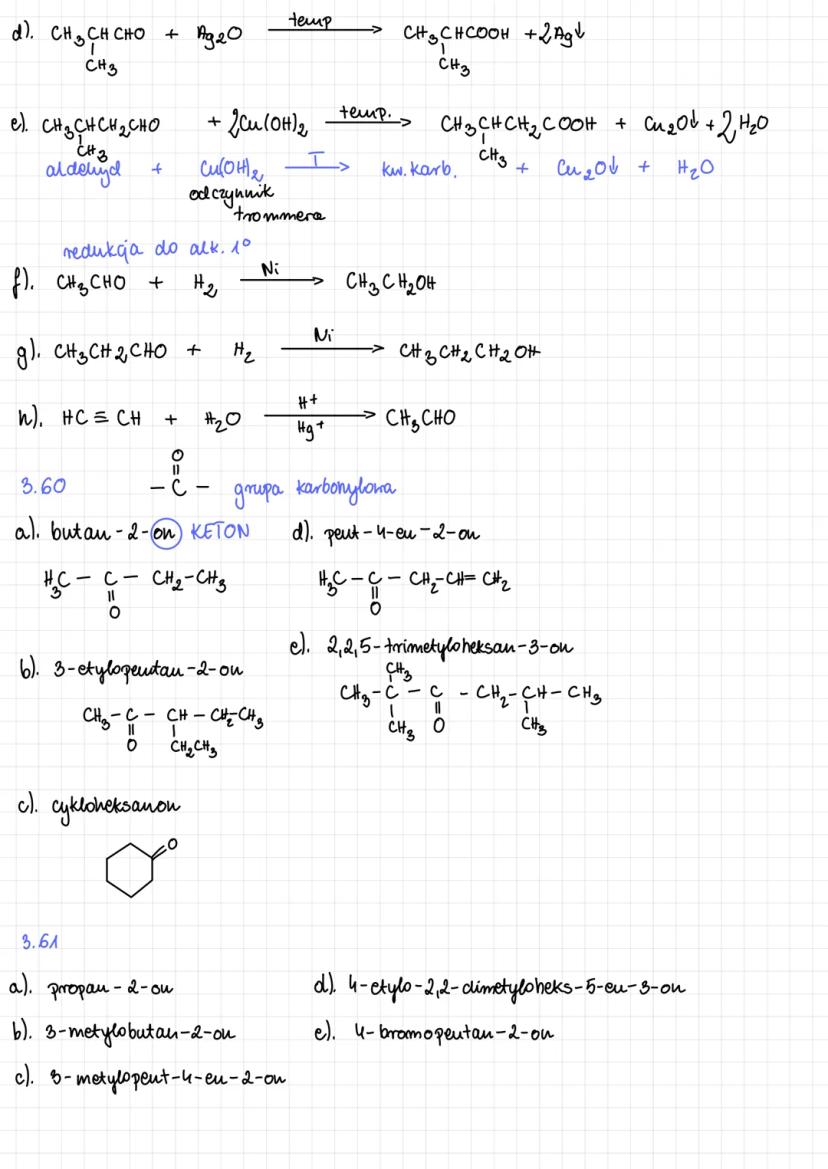 d). CH₃CHCHO + Ag₂O temp → CH₃CHCOOH + 2Ag↓
CH₃ CH₃
e). CH₃CHCH₂CHO + 2Cu(OH)₂ temp. → CH₃CHCH₂COOH + Cu₂O↓ + 2H₂O
CH₃ CH₃
aldehyd + Cu(OH)₂ T → kw. karb. + Cu₂O↓ + H₂O
odczynnik
trommera
redukcja do alk. 1°
f). CH₃CHO + H₂ Ni → CH₃CH₂OH
g). CH₃CH₂CHO + H₂ Ni → CH₃CH₂CH₂OH
h). HC ≡ CH + H₂O H+ Hg+ → CH₃CHO
O
=
3.60 – C – grupa karbonylowa
a). butan-2-on KETON
H₃C – C – CH₂-CH₃
=
O
d). pent-4-en-2-on
H₃C – C – CH₂-CH=CH₂
=
O
b). 3-etylopentan-2-on
CH₃ – C – CH – CH₂-CH₃
=
O CH₂CH₃
e). 2,2,5-trimetyloheksan-3-on
CH₃
CH₃-C – C - CH₂-CH-CH₃
=
CH₃ O CH₃
c). cykloheksanon
O
3.61
a). propan-2-on
b). 3-metylobutan-2-on
c). 3-metylopent-4-en-2-on
d). 4-etylo-2,2-dimetyloheks-5-en-3-on
e). 4-bromopentan-2-on